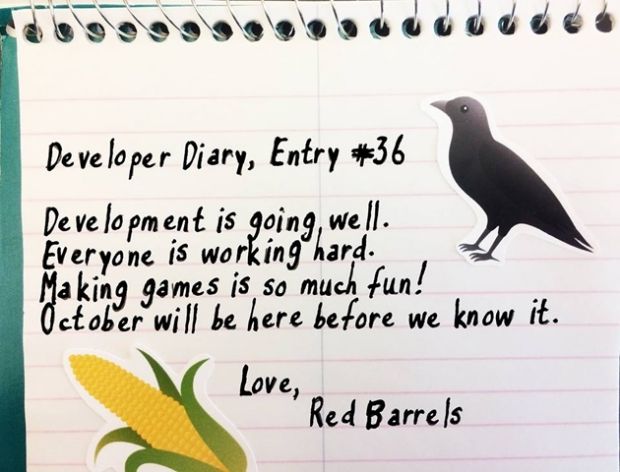 Developer Diary, Entry #36
Development is going well.
Everyone is working hard.
Making games is so much fun!
October will be here before we know it.
Love,
Red Barrels